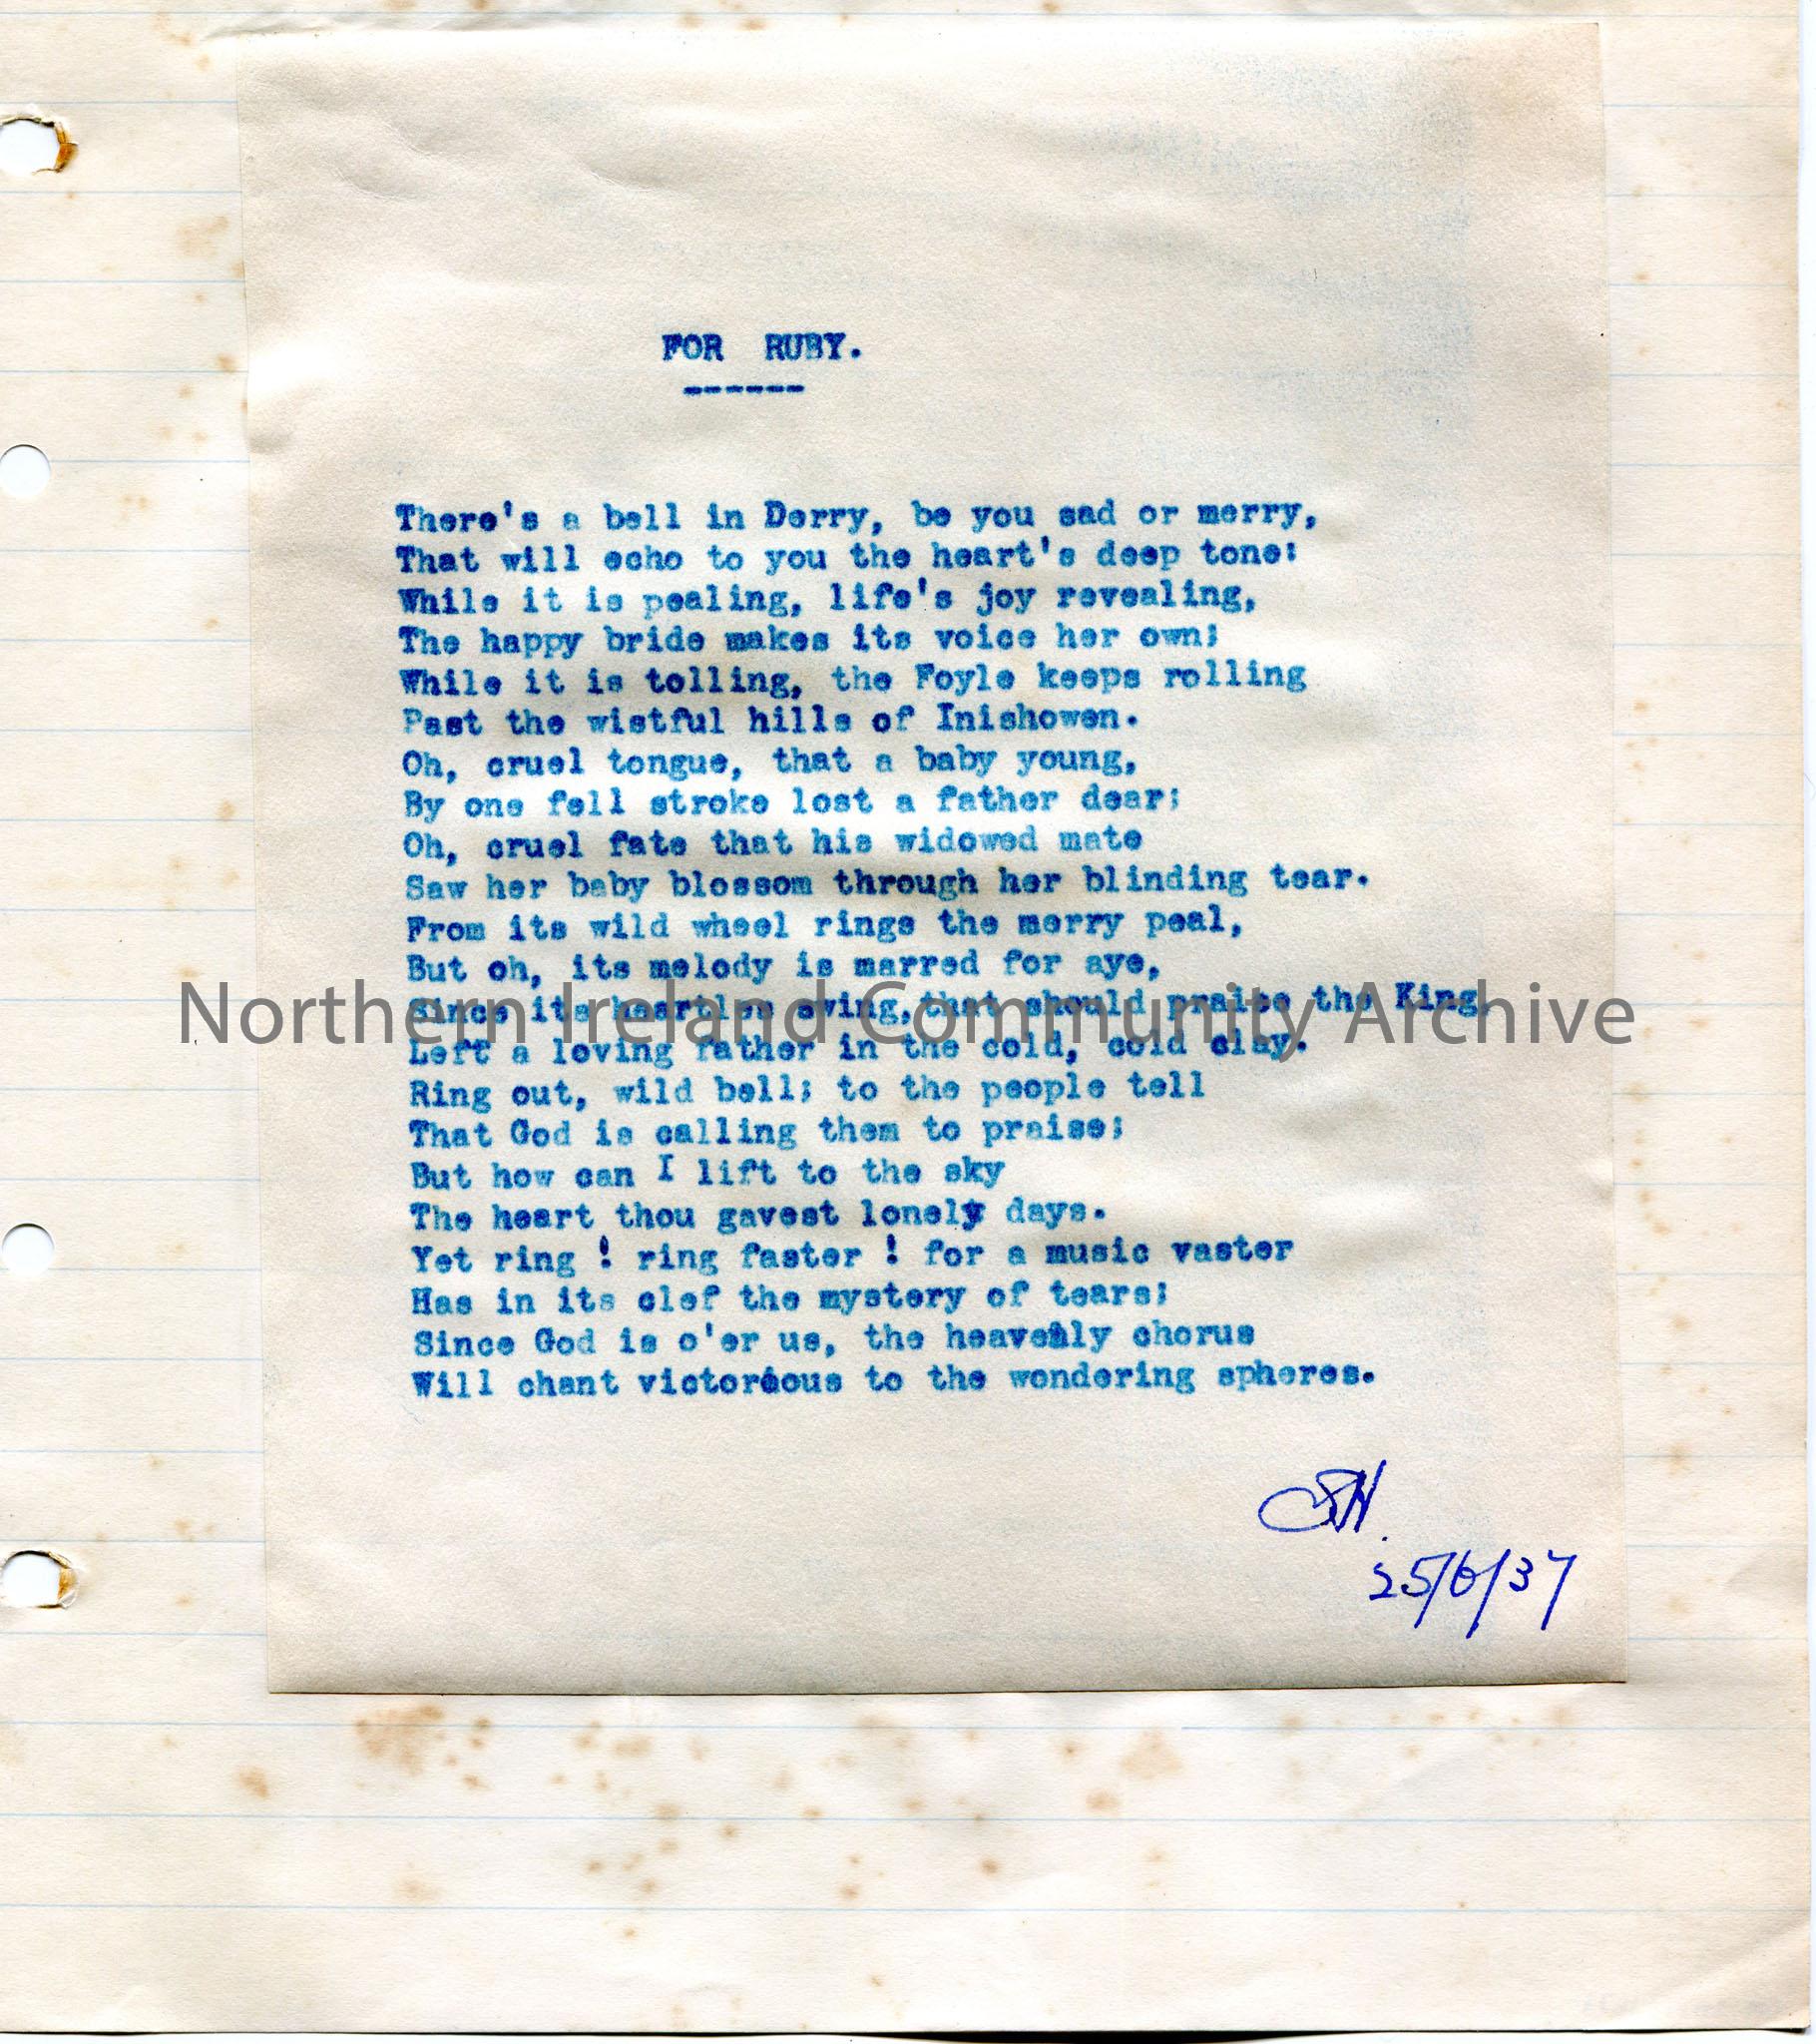 FOR RUBY.
------
There's a bell in Derry, be you sad or merry,
That will echo to you the heart's deep tone:
While it is pealing, life's joy revealing,
The happy bride makes its voice her own;
While it is tolling, the Foyle keeps rolling
Past the wistful hills of Inishowen.
Oh, cruel tongue, that a baby young,
By one fell stroke lost a father dear;
Oh, cruel fate that his widowed mate
Saw her baby blossom through her blinding tear.
From its wild wheel rings the merry peal,
But oh, its melody is marred for aye,
Since its heartles swing,that should praise the King,
Northern Ireland Community Archive
Left a loving father in the cold, cold clay.
Ring out, wild bell; to the people tell
That God is calling them to praise;
But how can I lift to the sky
The heart thou gavest lonely days.
Yet ring ! ring faster ! for a music vaster
Has in its clef the mystery of tears;
Since God is o'er us, the heavenly chorus
Will chant victorious to the wondering spheres.
SH.
25/6/37